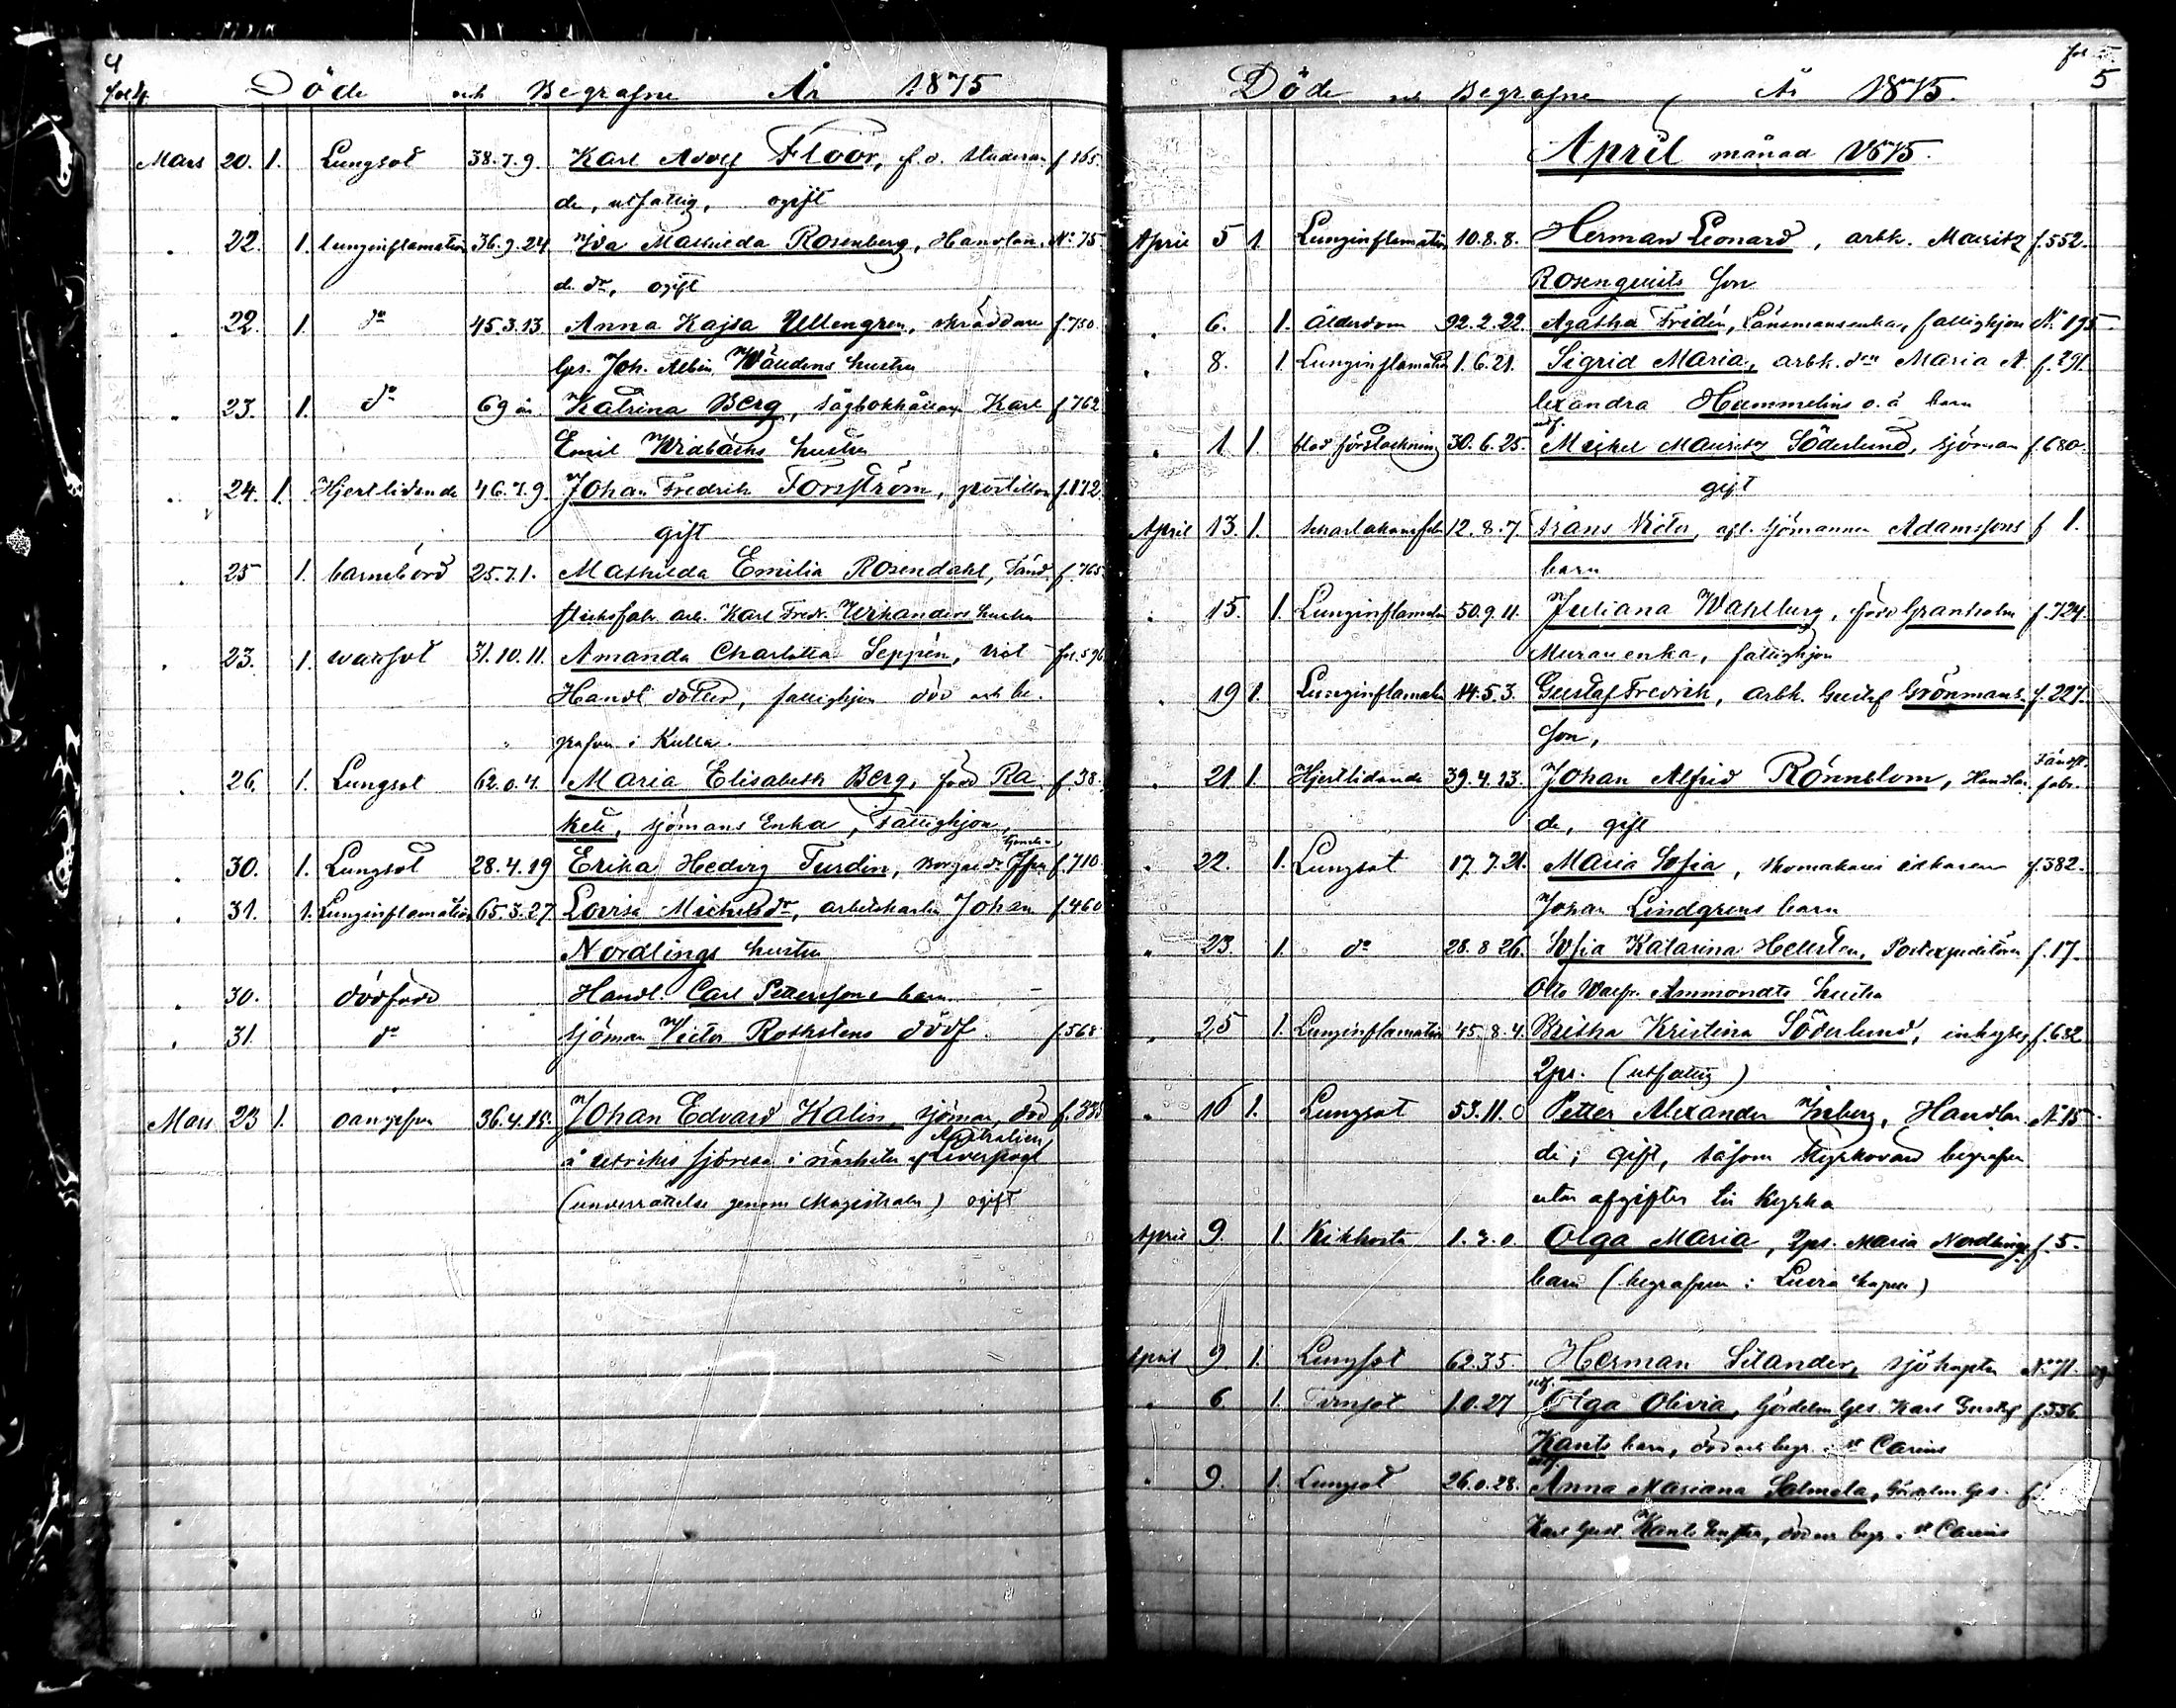 4
fol 4. Döde och Begrafne År 1875
Mars 20. 1. Lungsot 38.7.9. Karl Adolf Floor, f. d. studeran f 165.
de, utfattig, ogift
" 22. 1. lunginflamation 36.9.24 Ida Mathilda Rosenberg, Handlan- No 75
de dr, ogift
" 22. 1. do 45.3.13 Anna Kajsa Ullengren, skräddare f 750
ges. Joh. Albin hustru
" 23. 1. do 69 år Katrina Berg, Karl f 762
Emil Widbäcks hustru
" 24. 1. Hjertlidande 46.7.9. Johan Fredrik Forsström, postillon f. 172
gift
" 25 1. barnebörd 25.7.1. Mathilda Emilia Rosendahl, Tänd- f. 765
sticksfabr. arb. Karl Fredr. Wikanders hustru
" 23. 1. wattsot 31.10.11. Amanda Charlotta Seppén, Vict. fol. 596
Handl. dotter, fattighjon död och be-
grafven i Kulla.
" 26. 1. Lungsot 62.0.4. Maria Elisabeth Berg, född Ra- f. 38
keli, sjömans Enka, Fattighjon
" 30. 1. Lungsot 28.4.19 Erika Hedvig Turdin, f. 710
" 31. 1. Lunginflamation 65.3.27 Lovisa Michelsdr, arbetskarlen Johan f. 460
Nordlings hustru
" 30. dödfödd Handl. Carl Petterssons barn —
" 31. do sjöman Victor Rothstens dödf. f 568
Mars 23 1. oangifven 36.4.15. Johan Edvard Kalin, sjöman, död f. 338
Australien,
å utrikes sjöresa i närheten af Liverpool
(underrättelse genom Magistraten) ogift
fol 5
5
Döde och Begrafne År 1875.
April månad 1875.
April 5 1. Lunginflamation 10.8.8. Herman Leonard, arbk. Mauritz f. 552.
Rosenqvists son
" 6. 1. Ålderdom 92.2.22. Agatha Fridén, Länsmansenka, fattighjon No 195
" 8. 1 Lunginflamation 1.6.21. Sigrid Maria, arbk. dr Maria A- f. 291
lexandra Hummelins o. ä barn
" 1 1. 30.6.25. Michel Mauritz Söderlund, sjöman f 680.
gift
April 13. 1. 12.8.7. Frans Victor, afl. sjömannen Adamssons f 1.
barn
" 15. 1. Lunginflamation 50.9.11. Juliana Wahlberg, född Granholm f. 724.
Murareenka, fattighjon
" 19 1. Lunginflamation 14.5.3. Gustaf Fredrik, arbk. Gustaf Grönmans f. 227.
son,
" 21. 1. Hjertlidande 39.4.13. Johan Alfrid Rönnblom, Handlan- Tändst. fabr.
de, gift
" 22. 1. Lungsot 17.7.21. Maria Sofia, skomakare f. 382.
Johan Lindgrens barn
" 23. 1. do 28.8.26. Sofia Katarina Hellsten, Postexpeditören f. 17.
Otto Walfr. Ammondts hustru
" 25 1. Lunginflamation 45.8.4. Britha Kristina Söderlund, inhyses f. 682
Qps. (utfattig)
" 16 1. Lungsot 53.11.0 Petter Alexander Inberg, Handlan- No 15
de; gift, såsom kyrkovärd begrafven
utan afgifter till kyrka
April 9. 1. Kikhosta Olga Maria, Qps. Maria Nordlings f. 5.
barn (begrafven i Luvia kapell)
April 9 1. Lungsot 62.3.5. Herman Silander, sjökapten
" 6 1. Tvinsot 1.0.27 Olga Olivia, Gördelm. ges. Karl Gustaf f. 336
Kants barn, död och begr. i St Carins
" 9. 1. Lungsot 26.0.28. Anna Mariana Salmela, Gördelm. ges. f.
Karl Gust. Kants hustru, död och begr. i St Carins